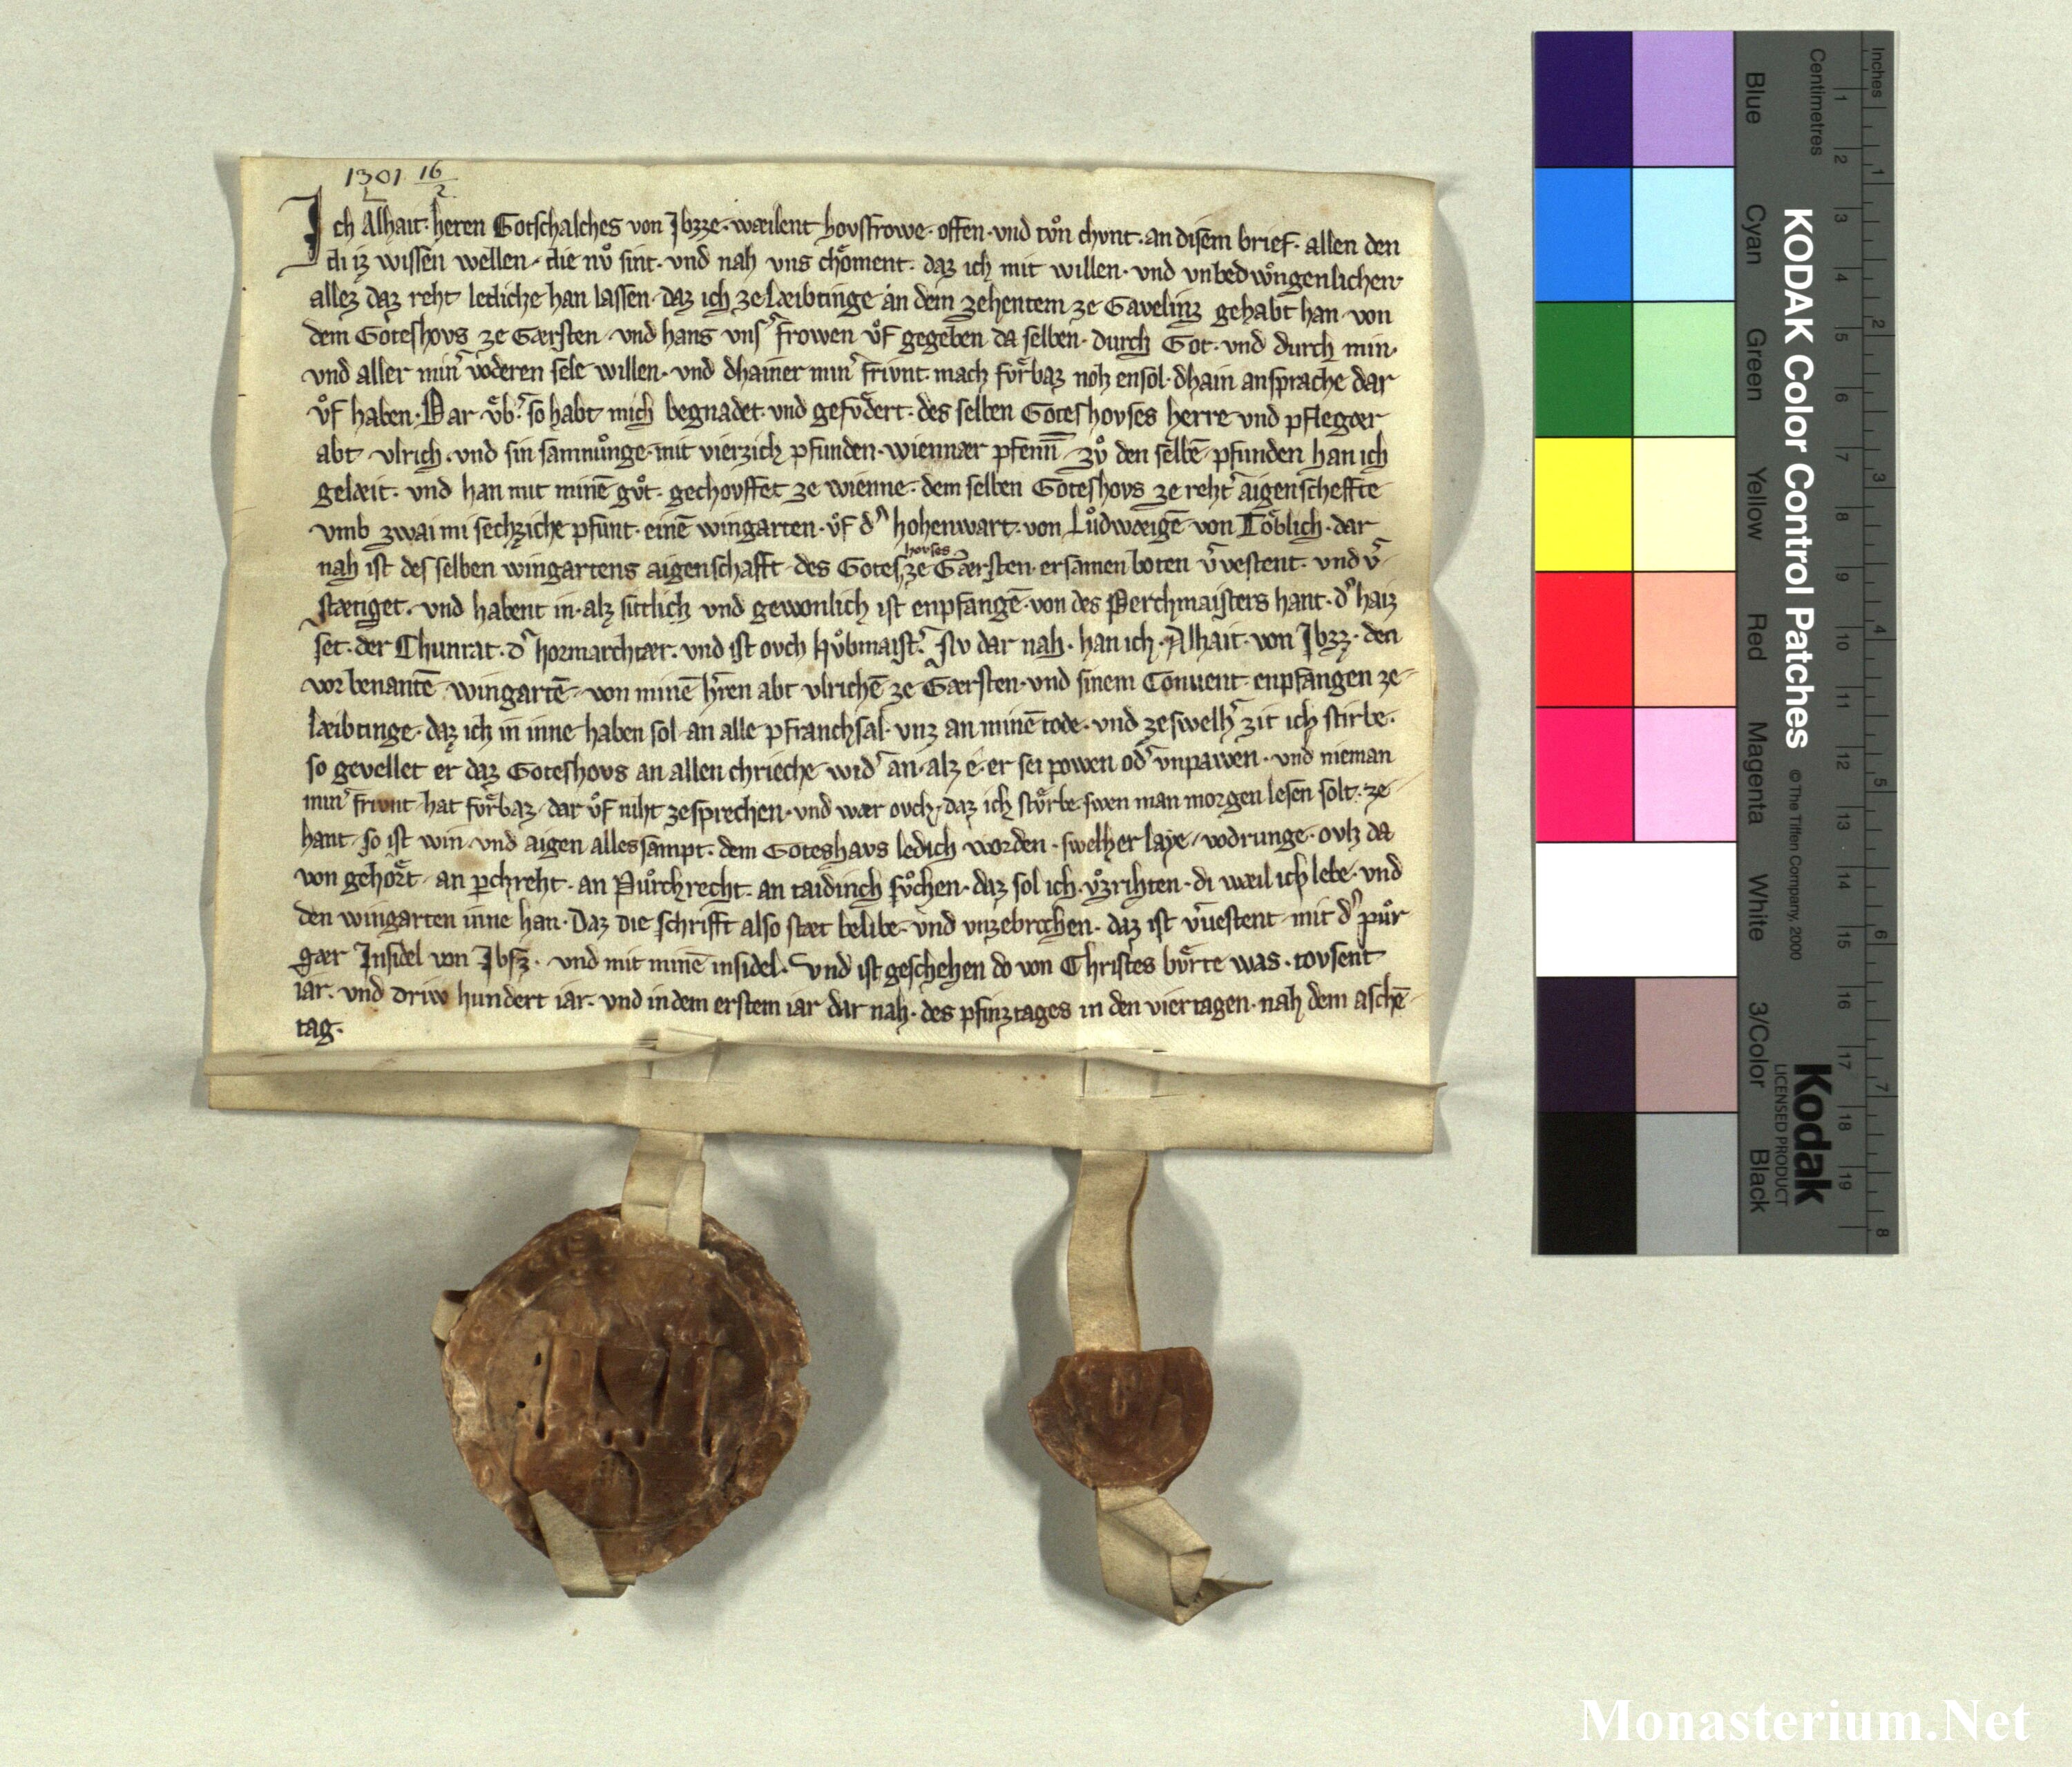 1301 16/2
Ich Alhait· heren Gotschalches von Jbzze· wæilent hovsfrowe· offen· vnd tvͦn chvnt· an disem brief· allen den
di iz wissen wellen· die nvͦ sint· vnd nah vns choͤment· daz ich mit willen· vnd vnbedwuͦngenlichen
allez daz reht ledichze han lassen· daz ich ze læibtinge an dem zehentem ze Gavelinz gehabt han von
dem Goteshovs ze Gærsten vnd hans vns͛ frowen vͦf gegeben da selben· durch Got· vnd durch min·
vnd aller min͛ voderen sele willen· vnd dhainer min͛ frivnt mach fvͤrbaz noh ensol· dhain ansprache dar
vͦf haben· Dar vͤb͛ so habt mich begnadet· vnd gefvdert· des selben Goteshovses herre vnd pflegær
abt vlrich· vnd sin samnuͦnge· mit vierzich pfunden· wiennær pfenn̄ zvͦ den selbē pfunden han ich
gelæit· vnd han mit minē gvͦt· gechovffet ze wienne· dem selben Goteshovs ze reht͛ aigenscheffte
vmb zwai mi sechziche pfunt· einē wingarten· vͦf d͛ hohenwart· von Luͦdwæigē von Toͤblich· dar
nah ist des selben wingartens aigenschafft des Gotes hovses ze Gærsten· ersamen boten v͛vestent· vnd v͛
stætiget· vnd habent in· alz sittlich vnd gewonlich ist enpfangē· von des Perchmaisters hant· d͛ haiz
set· der Chunrat· d͛ hormarchtær· vnd ist ovch Hvͦbmaist͛· Nv dar nah· han ich· Alhait· von Jbzz· den
vorbenantē wingartē von minē h͛ren abt vlrichē ze Gærsten· vnd sinem Conuent enpfangen ze
læibtinge· daz ich in inne haben sol an alle pfranchsal· vnz an minē tode· vnd ze swelh͛ zit ich stirbe·
so gevellet er daz Goteshovs an allen chrieche wid͛ an· alz ê· er sei powen od͛ vnpawen· vnd nieman
min͛ frivnt hat fvͤrbaz· dar vͦf niht zesprechen· vnd wær ovch· daz ich stvͤrbe swen man morgen lesen solt· ze
hant so ist win vnd aigen allessampt· dem Goteshavs ledich worden· swelher laye vodrunge· ovh da
von gehoͤrt an p͛chreht· an Puͦrchrecht· an taidinch svͦchen· daz sol ich· vͦzrihten· di wæil ich lebe· vnd
den wingarten inne han· Daz die schrifft also stæt belibe· vnd vnzebrochen· daz ist v͛uestent mit d͛ puͦr
gær Insidel von Jbsz· vnd mit minē insidel· Vnd ist geschehen do von Christes bvͤrte was· tovsent
iar· vnd driw hundert iar· vnd in dem erstem iar dar nah· des pfinztages in den viertagen· nah dem aschē
tag·
KODAK Color Control Patches
© The Tiffen Company, 2000
Kodak
LICENSED PRODUCT
Blue Cyan Green Yellow Red Magenta White 3/Color Black
Centimetres 1 2 3 4 5 6 7 8 9 10 11 12 13 14 15 16 17 18 19
Inches 1 2 3 4 5 6 7 8
Monasterium.Net